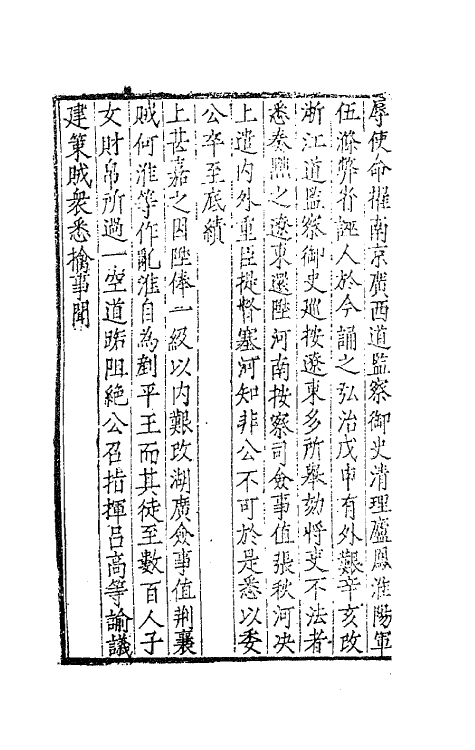 辱使命擢南京廣西道監察御史清理廬鳳淮陽軍
伍滌弊省誣人於今誦之弘治戊申有外艱辛亥改
浙江道監察御史巡按遼東多所舉劾將吏不法者
悉奏黜之遼東還陞河南按察司僉事值張秋河决
上遣内外重臣提督塞河知非公不可於是悉以委
公卒至底績
上甚嘉之因陞俸一級以内艱改湖廣僉事值荆襄
賊何淮等作亂淮自為剷平王而其徒至數百人子
女財帛所過一空道路阻絶公召指揮吕高等諭議
建策賊衆悉擒事聞